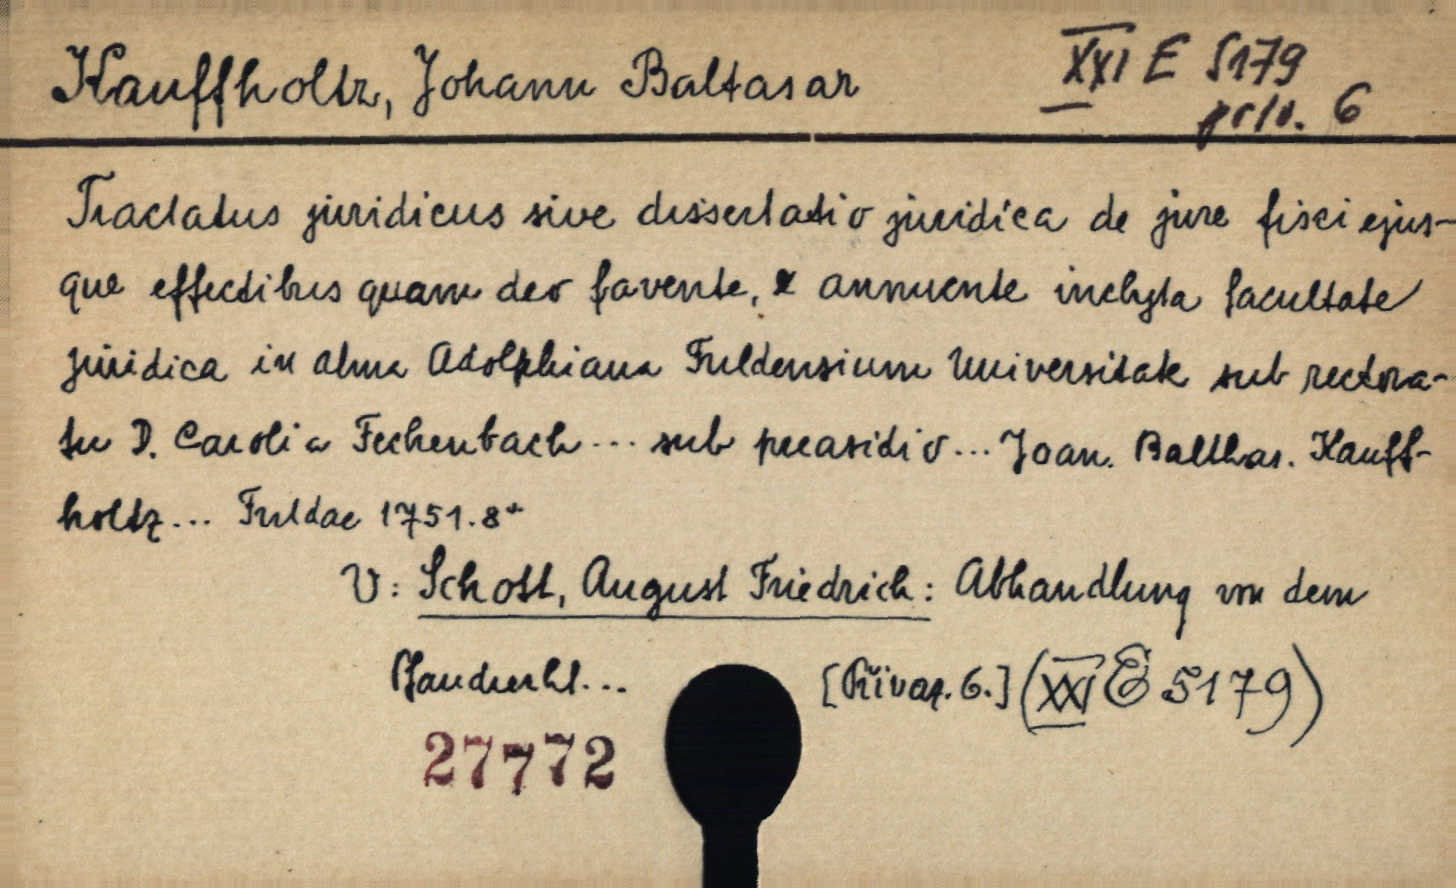 Kauffholtz, Johann Baltasar
XXI E 5179
přív. 6
Tractatus juridicus sive dissertatio juridica de jure fisci ejus-
que effectibus quam deo favente, & annuente inclyta facultate
juridica in alma Adolphiana Fuldensium Universitate sub rectora-
tu D. Caroli a Fechenbach... sub praesidio... Joan. Balthas. Kauff-
holtz... Fuldae 1751. 8+
V: Schott, August Friedrich: Abhandlung von dem
Pfandrecht... [Přívaz. 6.] (XXI E 5179)
27772